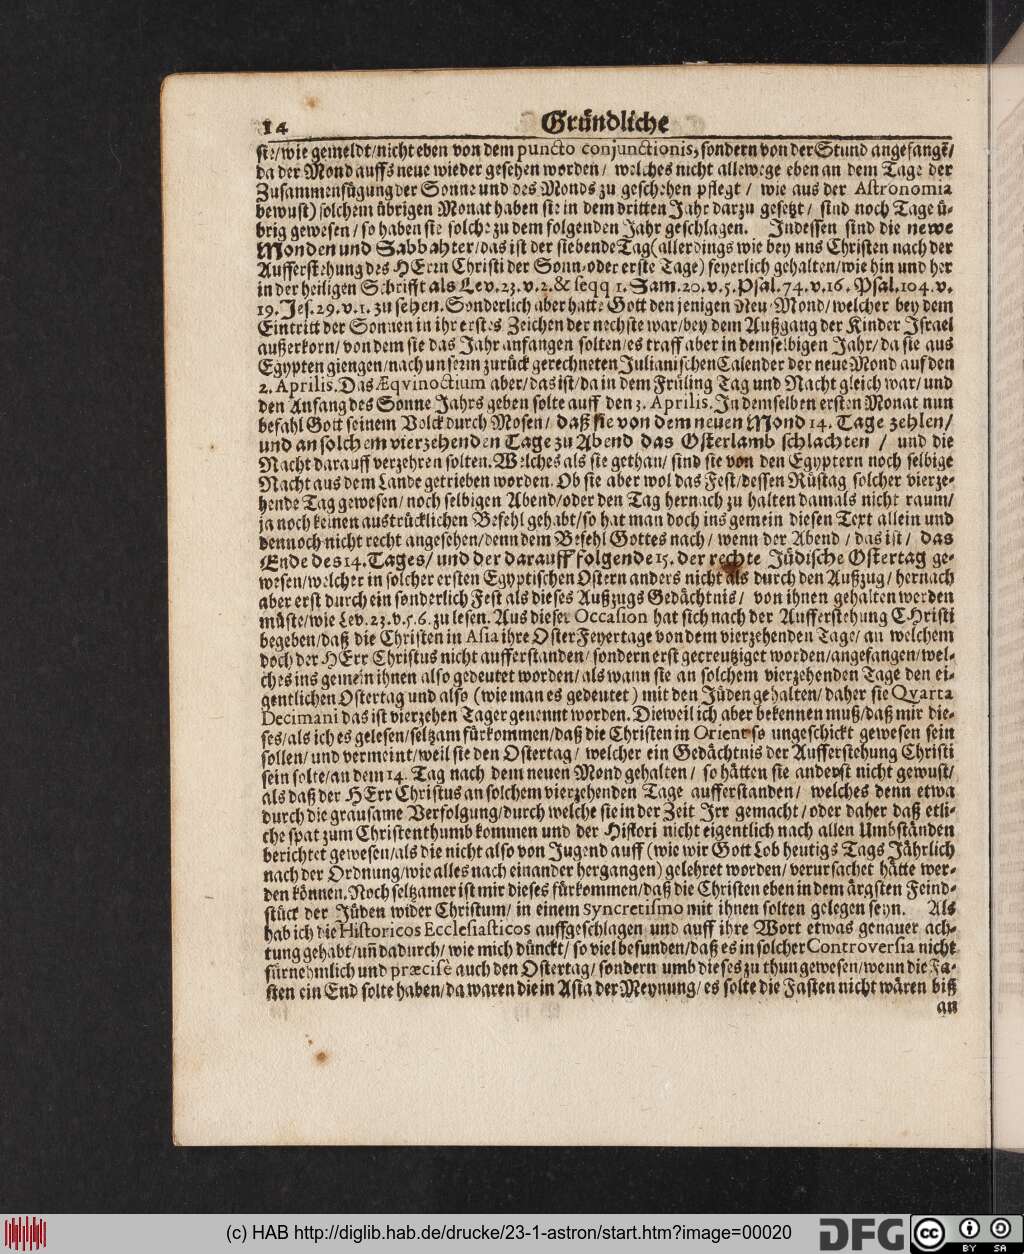 14 Gründliche
sie/wie gemeldt/nicht eben von dem puncto conjunctionis, sondern von der Stund angefangẽ/
da der Mond auffs neue wieder gesehen worden/ welches nicht allewege eben an dem Tage der
Zusammenfügung der Sonne und des Monds zu geschehen pflegt / wie aus der Astronomia
bewust) solchem übrigen Monat haben sie in dem dritten Jahr darzu gesetzt/ sind noch Tage ü-
brig gewesen/ so haben sie solche zu dem folgenden Jahr geschlagen. Indessen sind die newe
Monden und Sabbahter/das ist der siebende Tag(allerdings wie bey uns Christen nach der
Aufferstehung des HErrn Christi der Sonn-oder erste Tage) feyerlich gehalten/wie hin und her
in der heiligen Schrifft als Lev. 23. v. 2. & seqq 1. Sam. 20. v. 5. Psal. 74. v. 16. Psal. 104. v.
19. Jes. 29. v. 1. zu sehen. Sonderlich aber hatte Gott den jenigen Neu-Mond/welcher bey dem
Eintritt der Sonnen in ihr erstes Zeichen der nechste war/bey dem Außgang der Kinder Israel
außerkorn/ von dem sie das Jahr anfangen solten/es traff aber in demselbigen Jahr/da sie aus
Egypten giengen/nach unserm zurück gerechneten Julianischen Calender der neue Mond auf den
2. Aprilis. Das Æqvinoctium aber/das ist/da in dem Früling Tag und Nacht gleich war/ und
den Anfang des Sonne Jahrs geben solte auff den 3. Aprilis. In demselben ersten Monat nun
befahl Gott seinem Volck durch Mosen/ daß sie von dem neuen Mond 14. Tage zehlen/
und an solchem vierzehenden Tage zu Abend das Osterlamb schlachten / und die
Nacht darauff verzehren solten. Welches als sie gethan/ sind sie von den Egyptern noch selbige
Nacht aus dem Lande getrieben worden. Ob sie aber wol das Fest/dessen Rüstag solcher vierze-
hende Tag gewesen/ noch selbigen Abend/oder den Tag hernach zu halten damals nicht raum/
ja noch keinen austrücklichen Befehl gehabt/so hat man doch ins gemein diesen Text allein und
dennoch nicht recht angesehen/denn dem Befehl Gottes nach/ wenn der Abend / das ist / das
Ende des 14. Tages/ und der darauff folgende 15. der rechte Jüdische Ostertag ge-
wesen/welcher in solcher ersten Egyptischen Ostern anders nicht als durch den Außzug/ hernach
aber erst durch ein sonderlich Fest als dieses Außzugs Gedächtnis/ von ihnen gehalten werden
müste/wie Lev. 23. v. 5. 6. zu lesen. Aus dieser Occasion hat sich nach der Aufferstehung CHristi
begeben/daß die Christen in Asia ihre OsterFeyertage von dem vierzehenden Tage/ an welchem
doch der HErr Christus nicht aufferstanden/ sondern erst gecreutziget worden/angefangen/wel-
ches ins gemein ihnen also gedeutet worden/als wann sie an solchem vierzehenden Tage den ei-
gentlichen Ostertag und also (wie man es gedeutet) mit den Jüden gehalten/ daher sie Qvarta
Decimani das ist vierzehen Tager genennt worden. Dieweil ich aber bekennen muß/daß mir die-
ses/als ich es gelesen/seltzam fürkommen/daß die Christen in Orient so ungeschickt gewesen sein
sollen/ und vermeint/weil sie den Ostertag/ welcher ein Gedächtnis der Aufferstehung Christi
sein solte/an dem 14. Tag nach dem neuen Mond gehalten / so hätten sie anderst nicht gewust/
als daß der HErr Christus an solchem vierzehenden Tage aufferstanden/ welches denn etwa
durch die grausame Verfolgung/durch welche sie in der Zeit Irr gemacht/oder daher daß etli-
che spat zum Christenthumb kommen und der Histori nicht eigentlich nach allen Umbständen
berichtet gewesen/als die nicht also von Jugend auff (wie wir Gott Lob heutigs Tags Jährlich
nach der Ordnung/wie alles nach einander hergangen) gelehret worden/ verursachet hätte wer-
den können. Noch seltzamer ist mir dieses fürkommen/daß die Christen eben in dem ärgsten Feind-
stück der Jüden wider Christum/ in einem Syncretismo mit ihnen solten gelegen seyn. Als
hab ich die Historicos Ecclesiasticos auffgeschlagen und auff ihre Wort etwas genauer ach-
tung gehabt/uñ dadurch/ wie mich dünckt/ so viel befunden/daß es in solcher Controversia nicht
fürnehmlich und præcisè auch den Ostertag/ sondern umb dieses zu thun gewesen/wenn die Fa-
sten ein End solte haben/da waren die in Asia der Meynung/ es solte die Fasten nicht wären biß
an
(c) HAB http://diglib.hab.de/drucke/23-1-astron/start.htm?image=00020
DFG
cc
BY SA